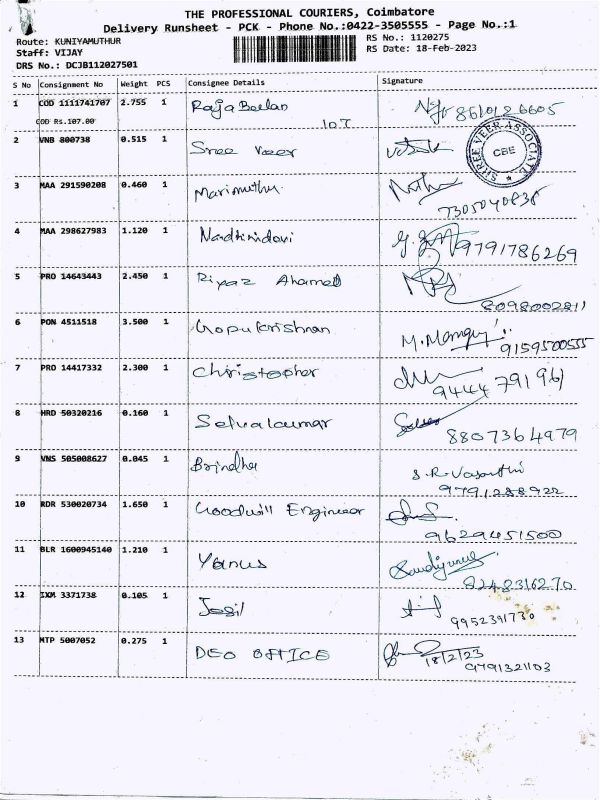 THE PROFESSIONAL COURIERS, Coimbatore
Delivery Runsheet - PCK - Phone No.:0422-3505555 - Page No.:1
Route: KUNIYAMUTHUR RS No.: 1120275
Staff: VIJAY RS Date: 18-Feb-2023
DRS No.: DCJB112027501
S No Consignment No Weight PCS Consignee Details Signature
1 COD 1111741707 2.755 1 Raja Beelan 8610126605
COD Rs.107.00 107
2 VNB 800738 0.515 1 Sree Veer SHREE VEER ASSOCIATE CBE
3 MAA 291590208 0.460 1 Marimuthu 7305040838
4 MAA 298627983 1.120 1 Nandhinidevi 9791786269
5 PRO 14643443 2.450 1 Riyaz Ahamed 8098002811
6 PON 4511518 3.500 1 Gopukrishnan 9159500555
7 PRO 14417332 2.300 1 Christopher 9444791961
8 HRD 50320216 0.160 1 Selvakumar 8807364979
9 VNS 505008627 0.045 1 Brindha S.R.Vasanthi
9791288922
10 RDR 530020734 1.650 1 Goodwill Engineer 9629451500
11 BLR 1600945140 1.210 1 Yanus 8248316270
12 IXM 3371738 0.105 1 Josil 9952391730
13 MTP 5007052 0.275 1 DEO OFFICE 18/2/23
9791321103